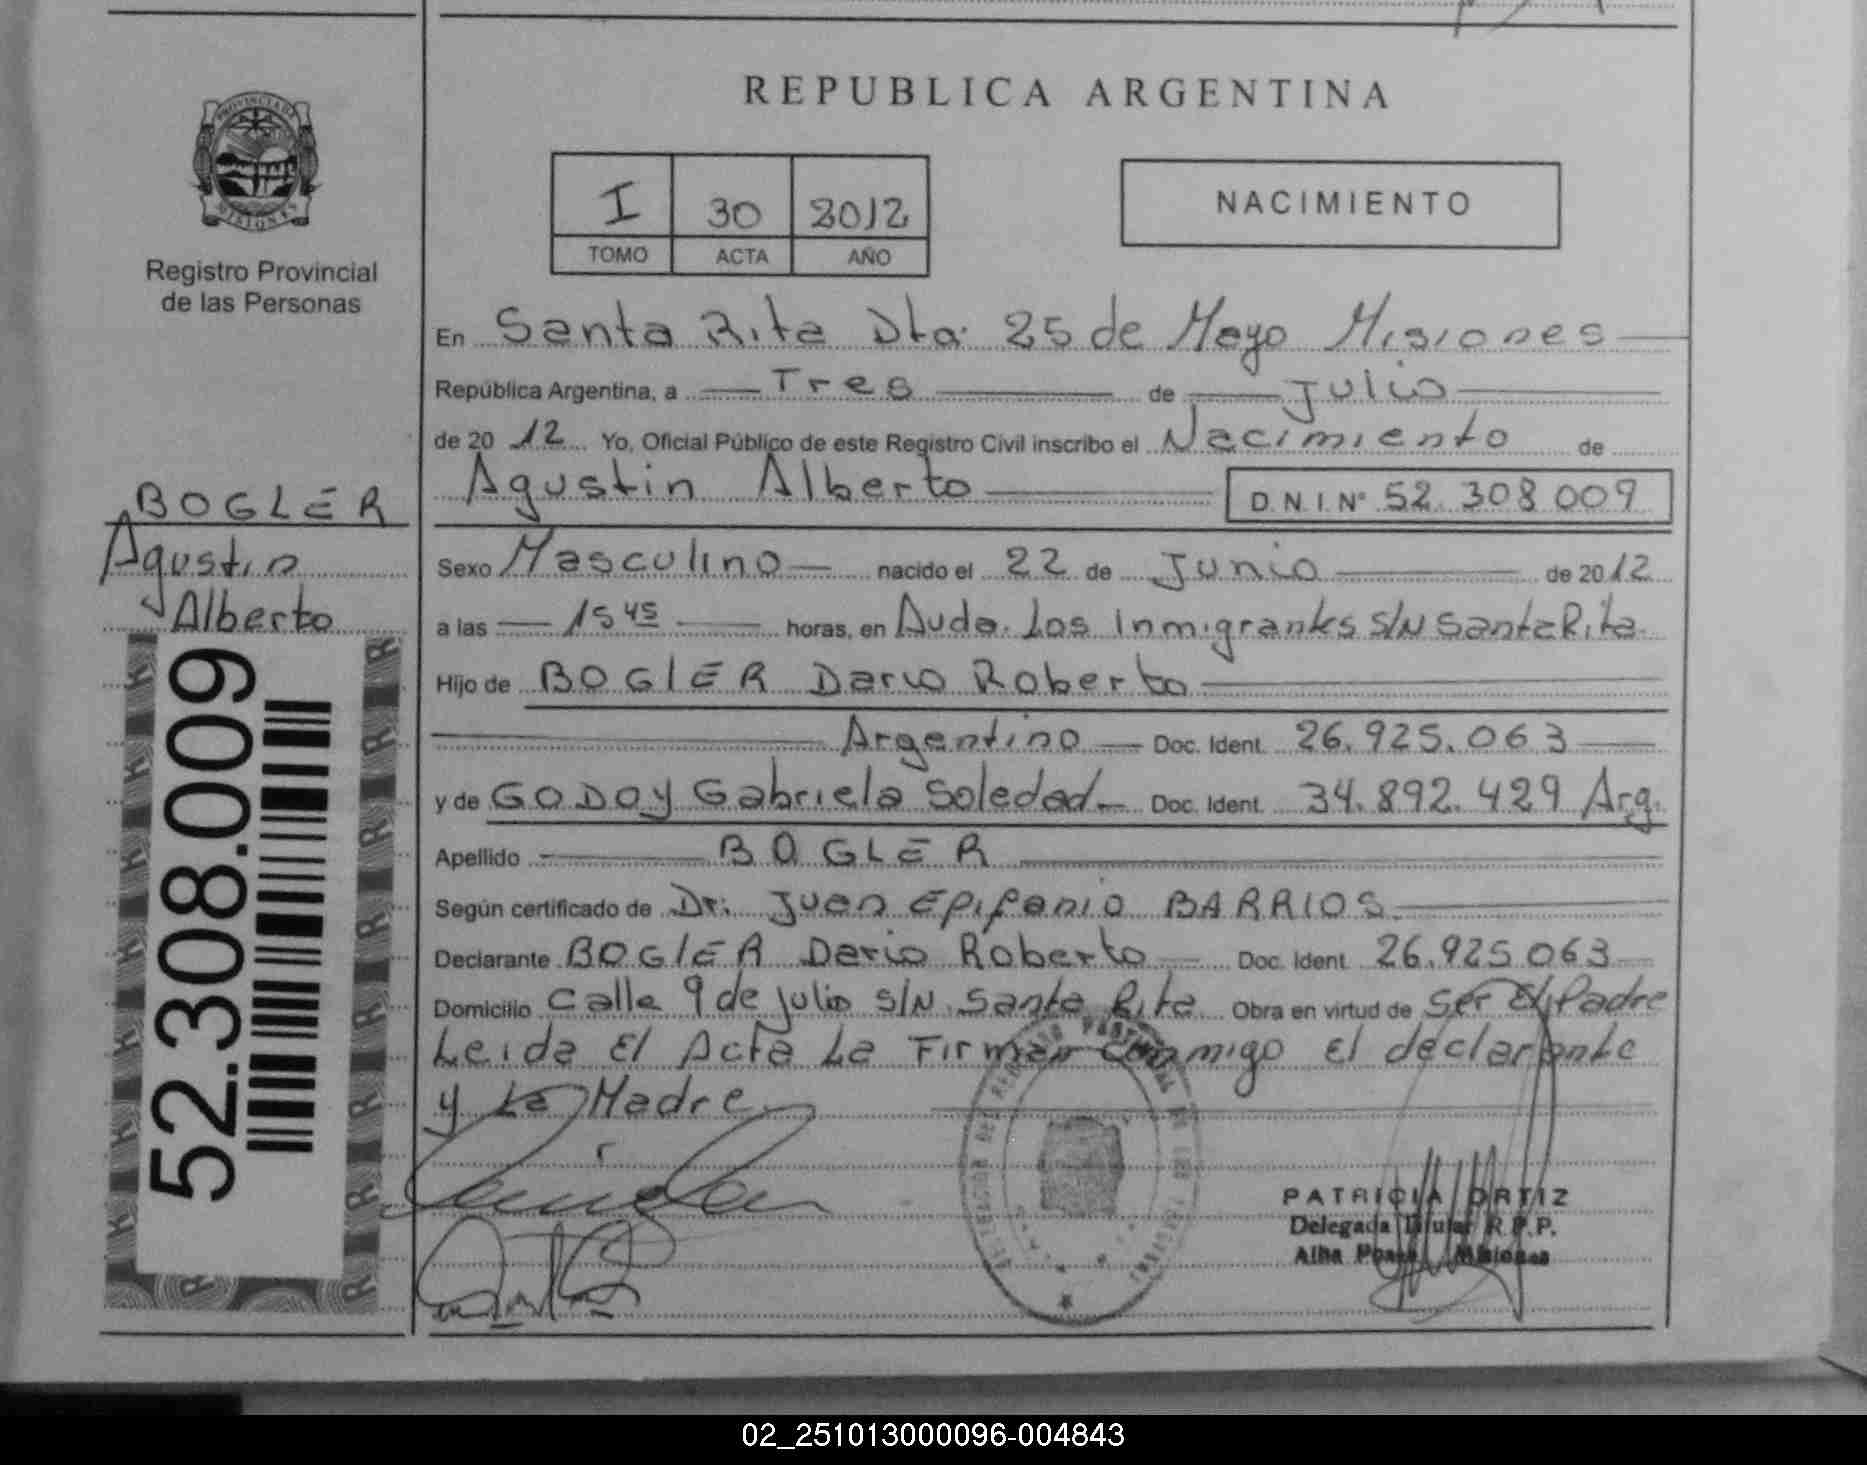 REPUBLICA ARGENTINA
PROVINCIA DE
MISIONES
Registro Provincial
de las Personas
I 30 2012
TOMO ACTA AÑO
NACIMIENTO
En Santa Rita Dto: 25 de Mayo Misiones
República Argentina, a Tres de Julio
de 20 12 Yo, Oficial Público de este Registro Civil inscribo el Nacimiento de
Agustin Alberto D.N.I.N° 52.308.009
BOGLER
Agustin
Alberto
52.308.009
Sexo Masculino nacido el 22 de Junio de 2012
a las 15 45 horas, en Avda. Los Inmigrantes S/N Santa Rita.
Hijo de BOGlER Dario Roberto
Argentino Doc. Ident. 26.925.063
y de GODOY Gabriela Soledad Doc. Ident. 34.892.429 Arg.
Apellido BOGLER
Según certificado de Dr. Juan Epifanio BARRIOS
Declarante BOGlER Dario Roberto Doc. Ident. 26.925.063
Domicilio Calle 9 de Julio S/N Santa Rita Obra en virtud de Ser El Padre
Leida El Acta La Firman Conmigo El declarante
y La Madre
PATRICIA ORTIZ
Delegada Titular R.P.P.
Alba Posse Misiones
02_251013000096-004843